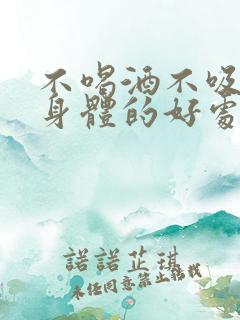 不喝酒不吸
身體的好處
諾諾芷琪
未任同意禁止轉載